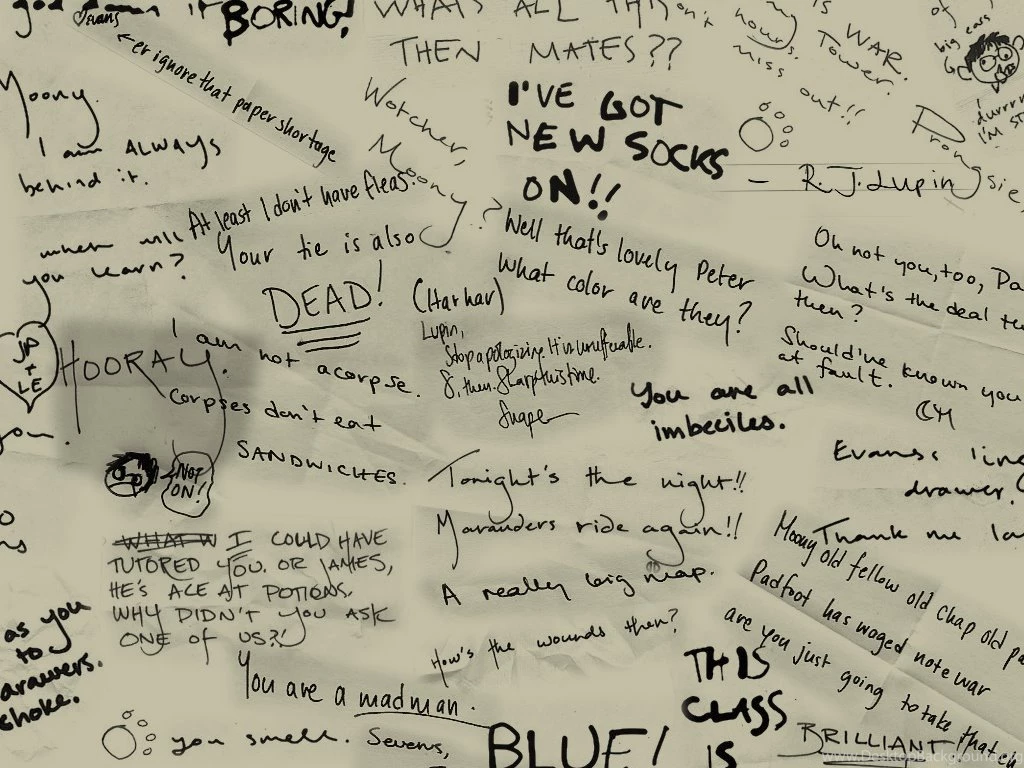 BORING!
WHAT'S ALL THIS
THEN MATES??
evans
←er ignore that paper shortage
hours.
miss
WAR.
Tower.
out!!
of
big ears
Moony.
I am ALWAYS
behind it.
Wotcher,
Moony?
I'VE GOT
NEW SOCKS
ON!!
Prongsie,
— R.J. Lupin
when will
you learn?
At least I don't have fleas.
Your tie is also
DEAD!
(Har har)
Well that's lovely Peter
What color are they?
Oh not you, too,
What's the deal
then?
Should've known you
at fault.
JP
+
LE
HOORAY.
I am not a corpse.
Corpses don't eat
SANDWICHES.
Lupin,
Stop apologizing. It is insufferable.
8, then. 8 sharp this time.
Snape
You are all
imbeciles.
you.
NOT
ON!
Tonight's the night!!
Marauders ride again!!
A really big map.
How's the wounds then?
Evans
drawer.
Thank me
I COULD HAVE
TUTORED YOU. OR JAMES,
HE'S ACE AT POTIONS.
WHY DIDN'T YOU ASK
ONE OF US?!
Moony old fellow old chap old
Padfoot has waged note war
are you just going to take that
as you
to
drawers.
choke.
You are a madman.
you smell.
Severus,
BLUE!
THIS
CLASS
IS
BRILLIANT!
www.DesktopBackground.org